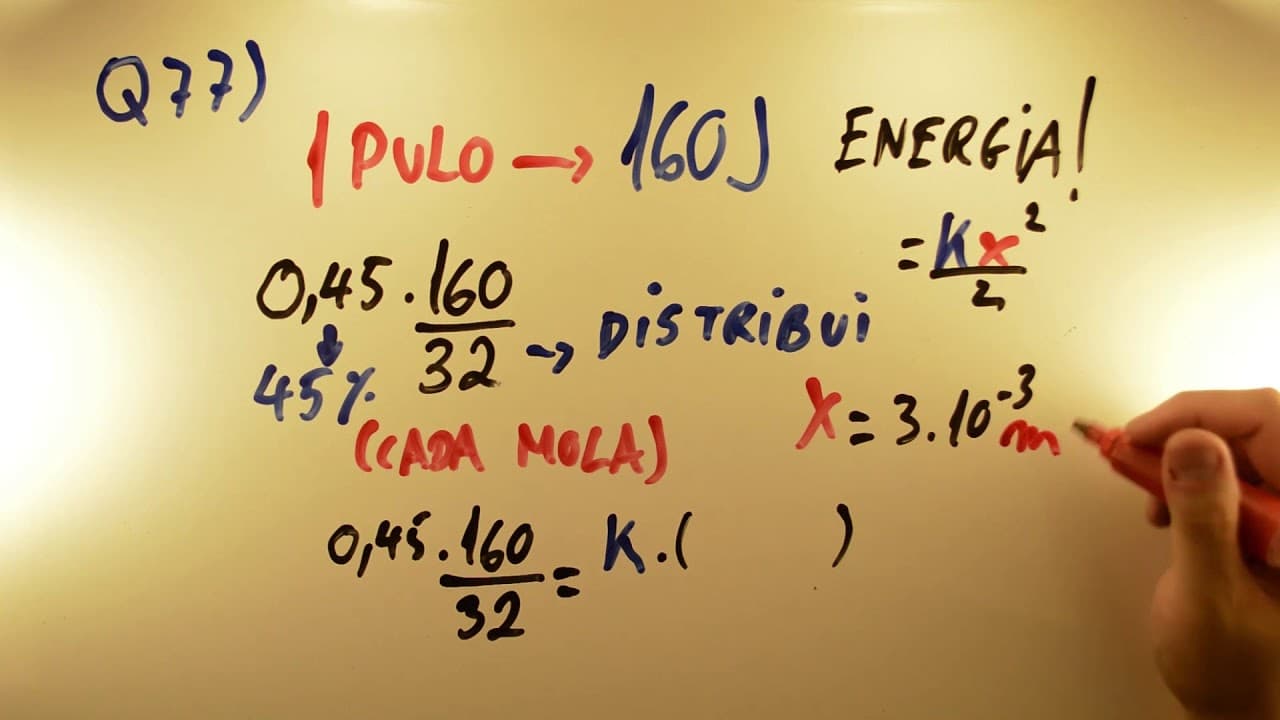 Q77)
1 PULO → 160J
ENERGiA!
= Kx²/2
0,45 . 160/32 → DiSTRiBUi
45%
(CADA MOLA)
X = 3.10⁻³ m
0,45 . 160/32 = K . ( )